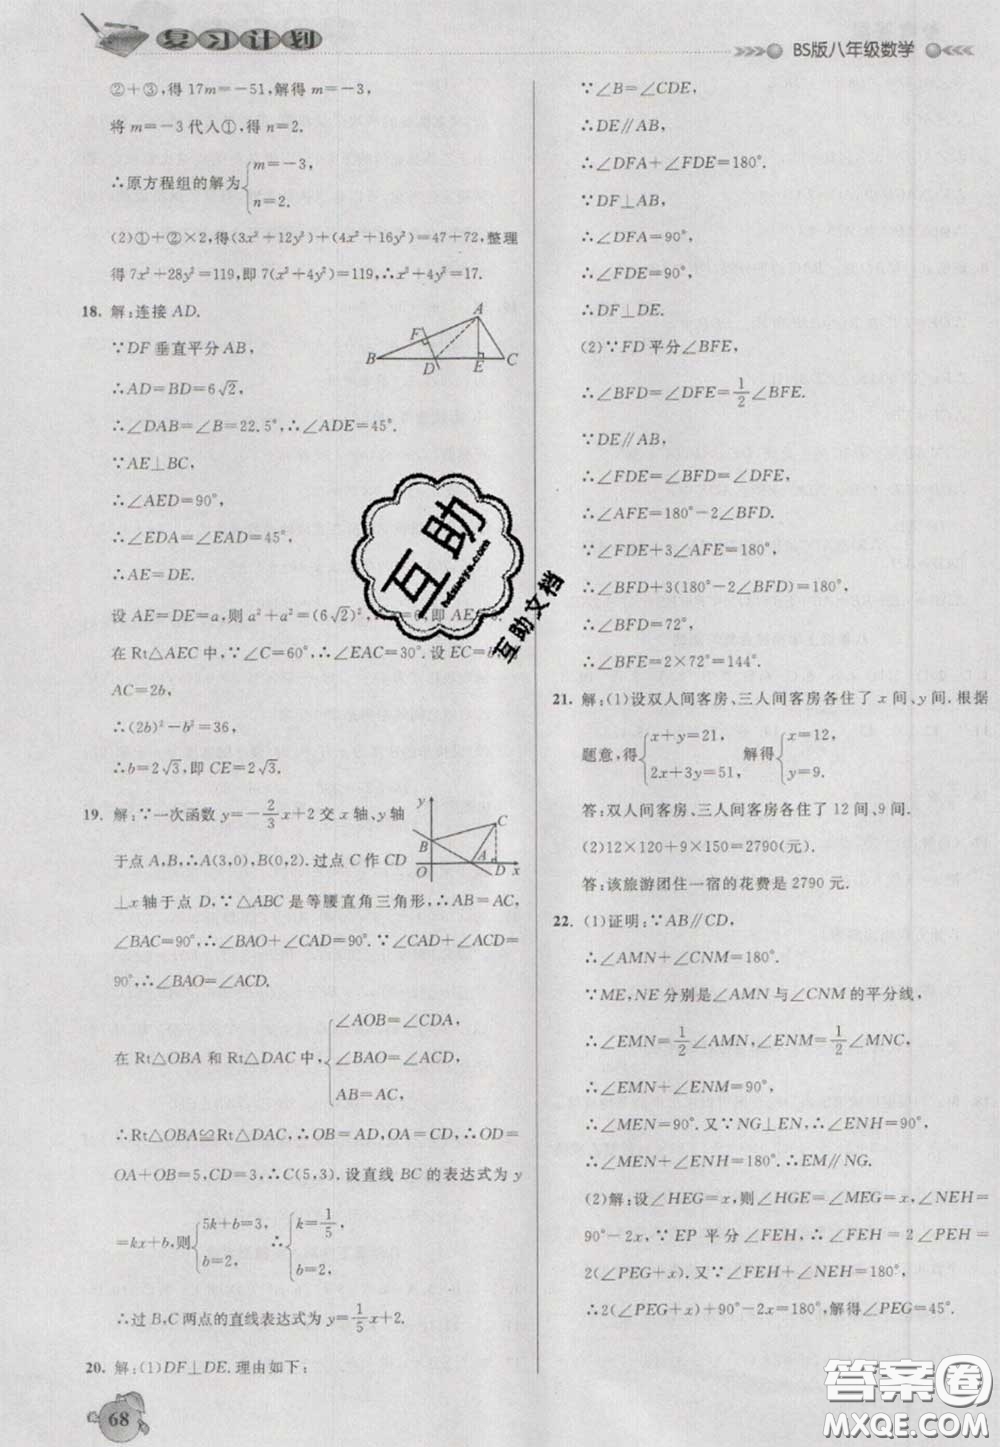 复习计划
BS版八年级数学
②+③,得 17m=-51,解得 m=-3,
将 m=-3 代入①,得 n=2.
∴原方程组的解为{m=-3,
n=2.
(2)①+②×2,得(3x²+12y²)+(4x²+16y²)=47+72,整理
得 7x²+28y²=119,即 7(x²+4y²)=119,∴x²+4y²=17.
18. 解:连接 AD.
∵DF 垂直平分 AB,
∴AD=BD=6√2,
∴∠DAB=∠B=22.5°,∴∠ADE=45°.
∵AE⊥BC,
∴∠AED=90°,
∴∠EDA=∠EAD=45°,
∴AE=DE.
设 AE=DE=a,则 a²+a²=(6√2)², =6,即 AE
在 Rt△AEC 中,∵∠C=60°,∴∠EAC=30°.设 EC=b
AC=2b,
∴(2b)²-b²=36,
∴b=2√3,即 CE=2√3.
A
F
B D E C
19. 解:∵一次函数 y=-2/3x+2 交 x 轴、y 轴
于点 A,B,∴A(3,0),B(0,2).过点 C 作 CD
⊥x 轴于点 D,∵△ABC 是等腰直角三角形,
∠BAC=90°,∴∠BAO+∠CAD=90°.又∵∠CAD+∠ACD=
90°,∴∠BAO=∠ACD.
y
C
B
O A D x
在 Rt△OBA 和 Rt△DAC 中,{∠AOB=∠CDA,
∠BAO=∠ACD,
AB=AC,
∴Rt△OBA≌Rt△DAC,∴OB=AD,OA=CD,∴OD=
OA+OB=5,CD=3,∴C(5,3).设直线 BC 的表达式为 y
=kx+b,则{5k+b=3, ∴{k=1/5,
b=2. b=2.
∴过 B,C 两点的直线表达式为 y=1/5x+2.
20. 解:(1)DF⊥DE.理由如下:
68
∵∠B=∠CDE,
∴DE∥AB,
∴∠DFA+∠FDE=180°.
∵DF⊥AB,
∴∠DFA=90°,
∴∠FDE=90°,
∴DF⊥DE.
(2)∵FD 平分∠BFE,
∴∠BFD=∠DFE=1/2∠BFE.
∵DE∥AB,
∴∠FDE=∠BFD=∠DFE,
∴∠AFE=180°-2∠BFD.
∵∠FDE+3∠AFE=180°,
∴∠BFD+3(180°-2∠BFD)=180°,
∴∠BFD=72°,
∴∠BFE=2×72°=144°.
21. 解:(1)设双人间客房、三人间客房各住了 x 间、y 间.根据
题意,得{x+y=21, 解得{x=12,
2x+3y=51, y=9.
答:双人间客房、三人间客房各住了 12 间、9 间.
(2)12×120+9×150=2790(元).
答:该旅游团住一宿的花费是 2790 元.
22. (1)证明:∵AB∥CD,
∴∠AMN+∠CNM=180°.
∵ME,NE 分别是∠AMN 与∠CNM 的平分线,
∴∠EMN=1/2∠AMN,∠ENM=1/2∠MNC,
∴∠EMN+∠ENM=90°,
∴∠MEN=90°.又∵NG⊥EN,∴∠ENG=90°,
∴∠MEN+∠ENG=180°,∴EM∥NG.
(2)解:设∠HEG=x,则∠HGE=∠MEG=x,∠NEH=
90°-2x,∵EP 平分∠FEH,∴∠FEH=2∠PEH=
2(∠PEG+x).又∵∠FEH+∠NEH=180°,
∴2(∠PEG+x)+90°-2x=180°,解得∠PEG=45°.
互助
hdzuoye.com
互助文档
答案圈
MXQE.COM